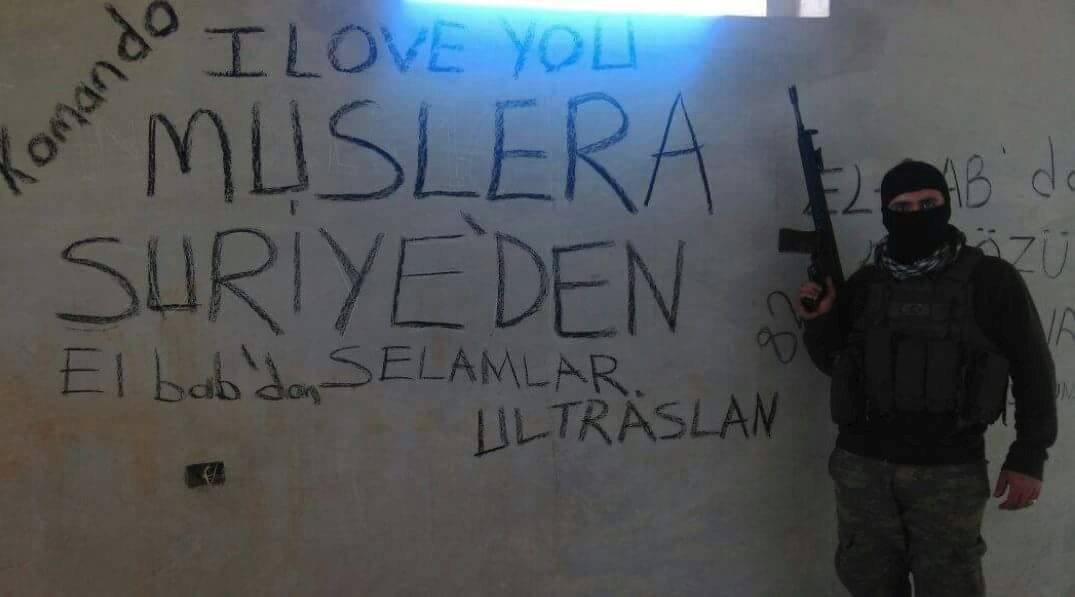 Komando
I LOVE YOU
MUSLERA
SURİYE'DEN
El bab'dan SELAMLAR
ULTRASLAN
EL-BAB'da